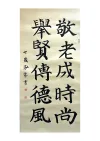 敬老戌時尚
舉賢傅德風